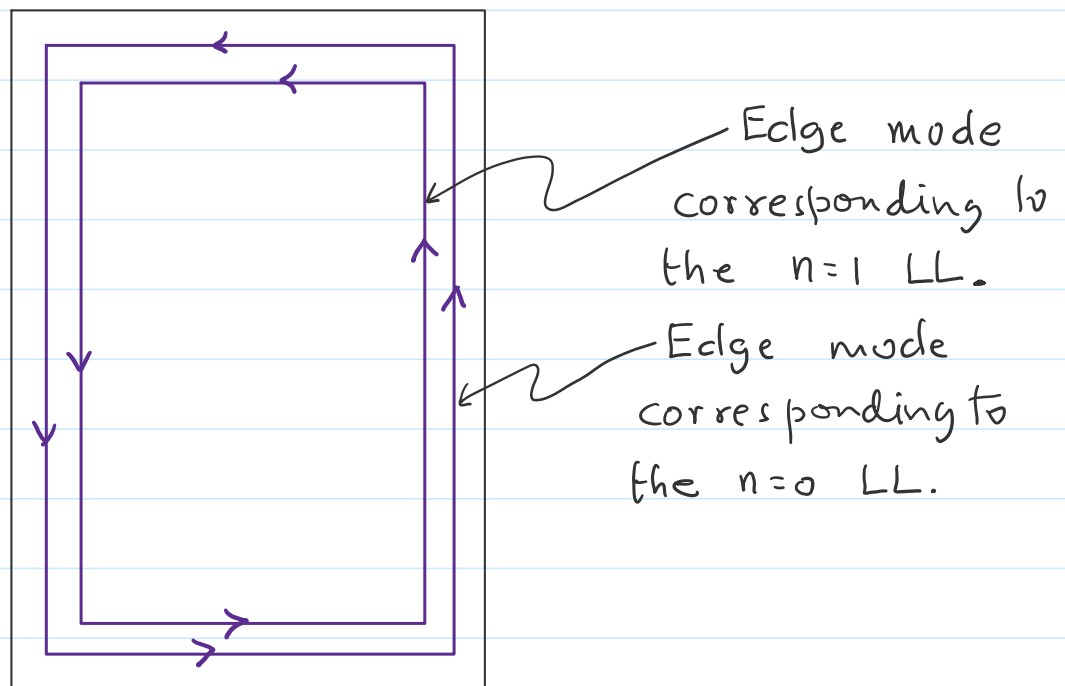 Edge mode
corresponding to
the n=1 LL.
Edge mode
corresponding to
the n=0 LL.